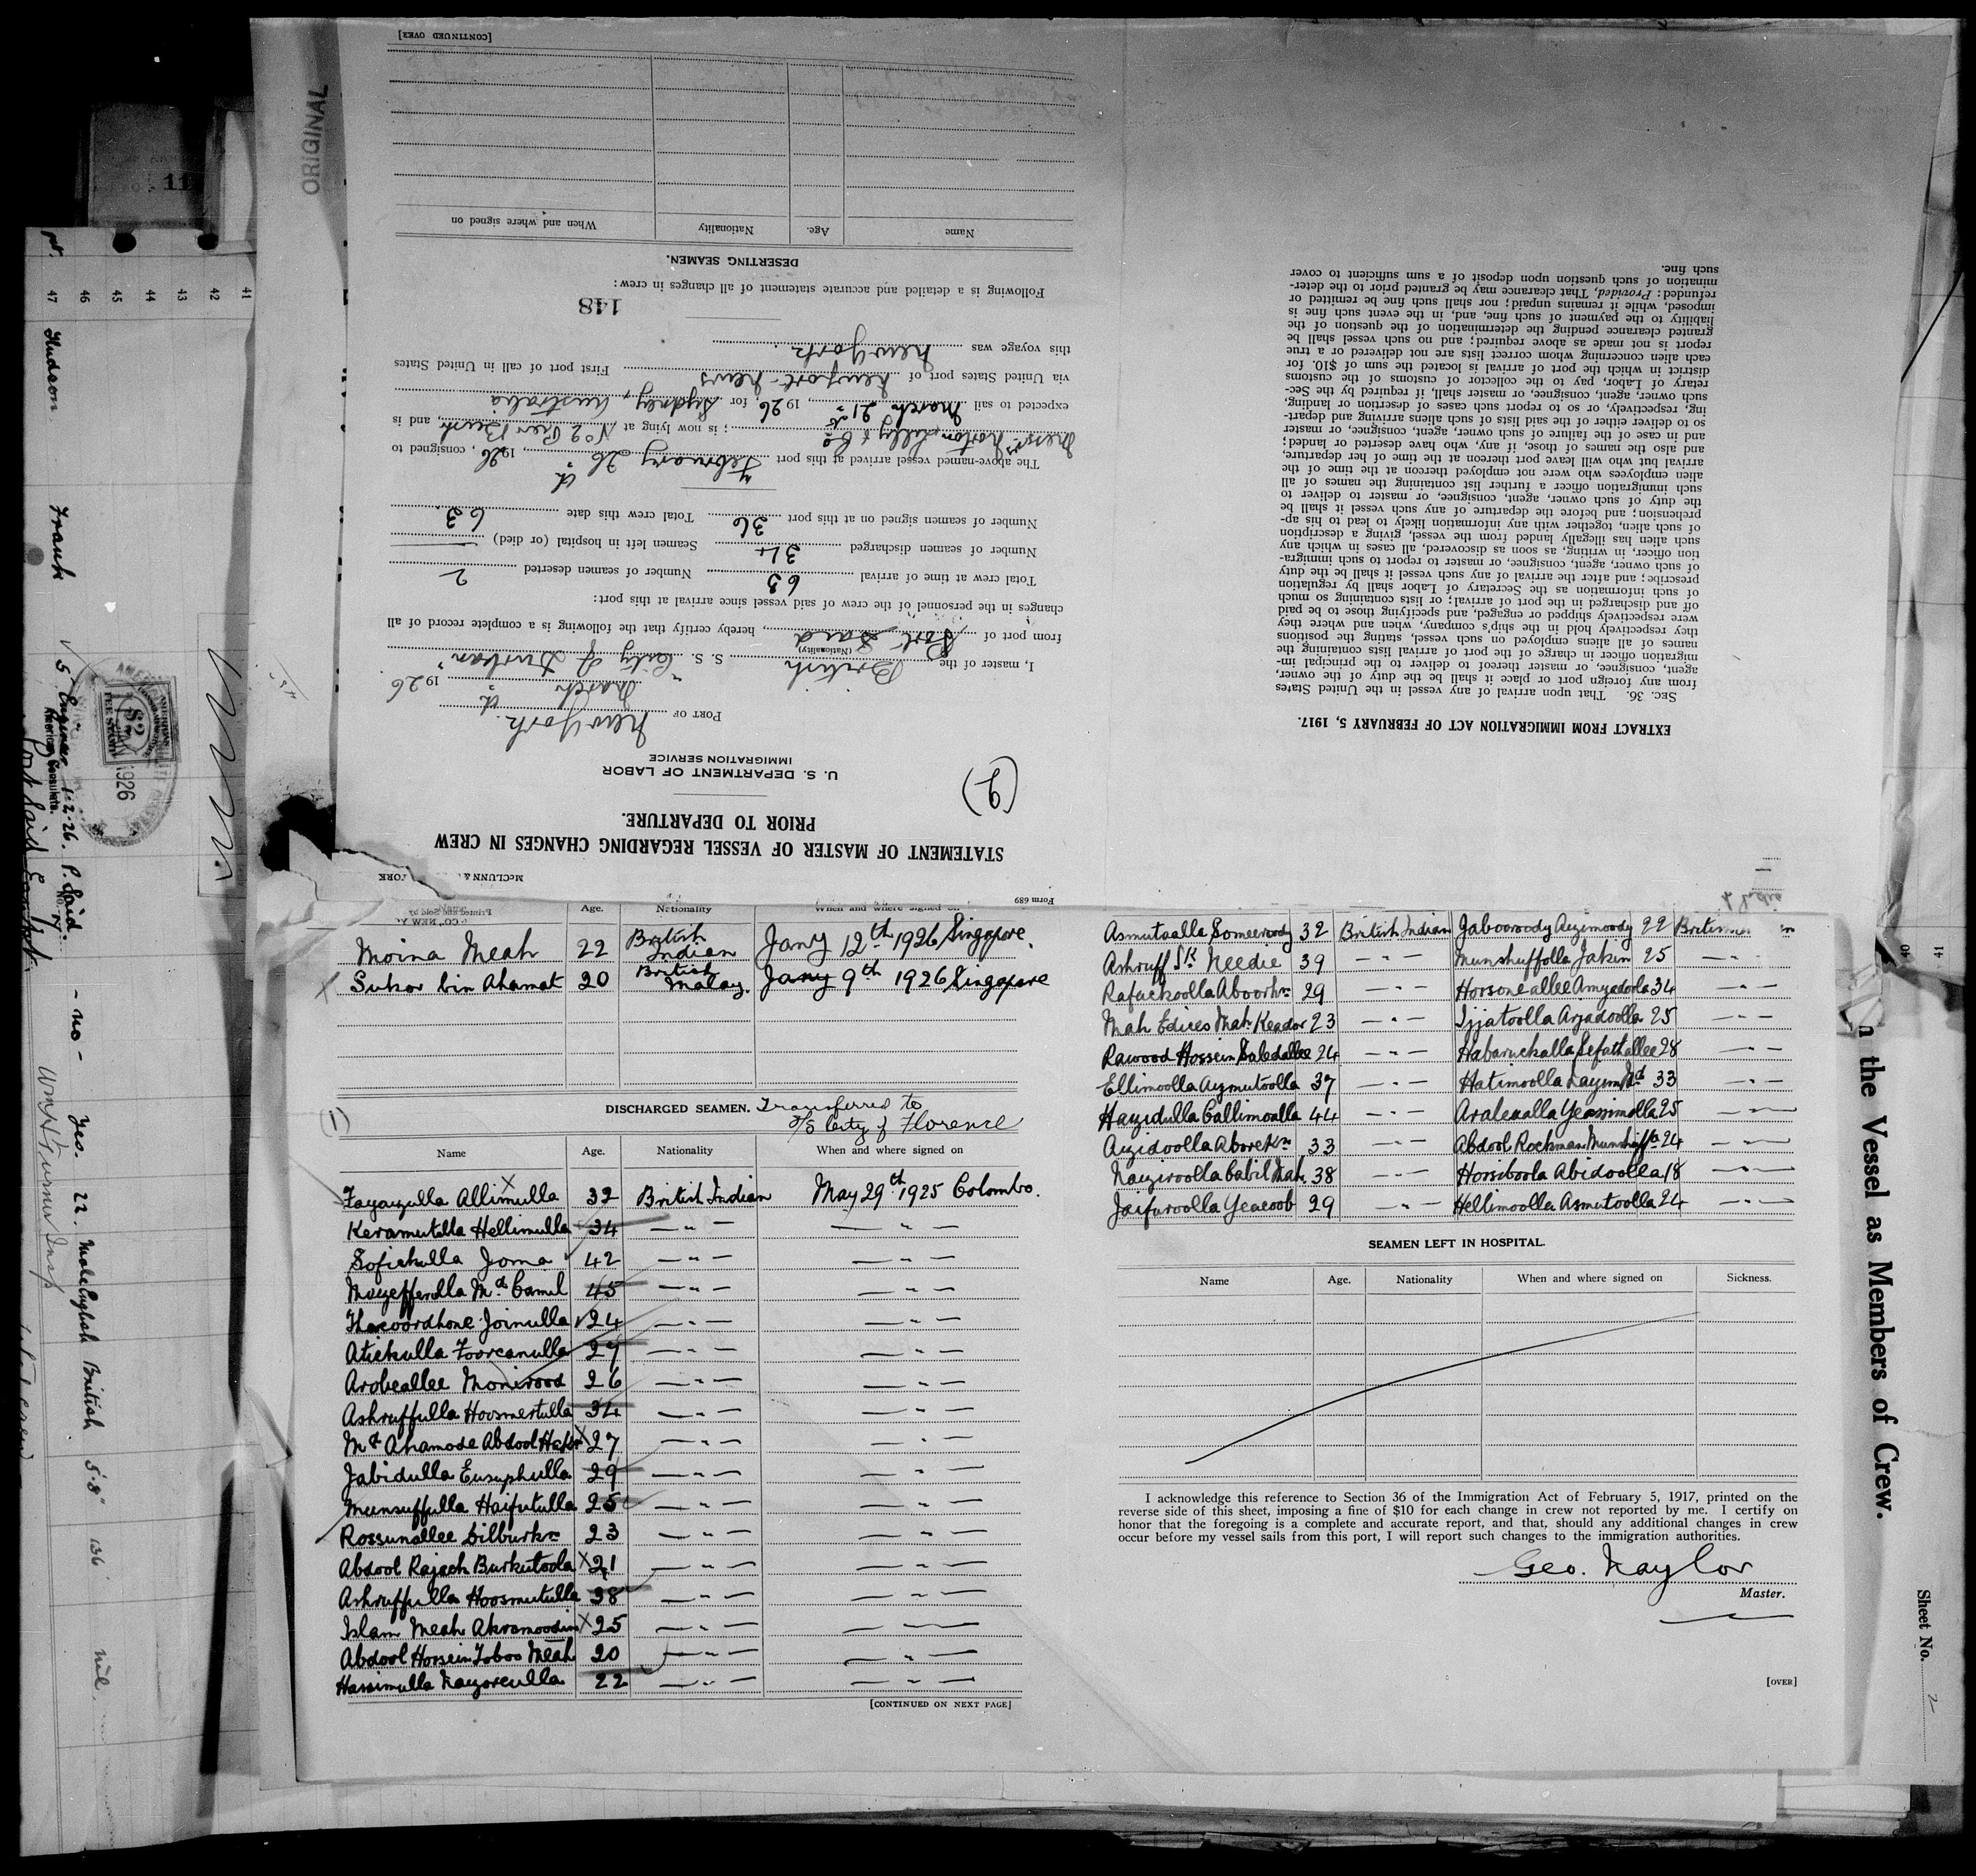 ORIGINAL
[CONTINUED OVER]
Name Age. Nationality When and where signed on
DESERTING SEAMEN.
Following is a detailed and accurate statement of all changes in crew:
148
this voyage was New York.
via United States port of Newport News First port of call in United States
expected to sail March 21st, 1926, for Sydney, Australia
Messrs Norton, Lilly & Co; is now lying at No 2 Pier Bush, and is
The above-named vessel arrived at this port February 26th, 1926, consigned to
Number of seamen signed on at this port 36 Total crew this date 63.
Number of seamen discharged 34 Seamen left in hospital (or died)
Total crew at time of arrival 63 Number of seamen deserted 2
changes in the personnel of the crew of said vessel since arrival at this port:
from port of Port Said, hereby certify that the following is a complete record of all
I, master of the British S. S. "City of Durban"
(Nationality)
March 1926
PORT OF New York.
IMMIGRATION SERVICE
U. S. DEPARTMENT OF LABOR
(2)
PRIOR TO DEPARTURE.
STATEMENT OF MASTER OF VESSEL REGARDING CHANGES IN CREW
Form 689
EXTRACT FROM IMMIGRATION ACT OF FEBRUARY 5, 1917.
SEC. 36. That upon arrival of any vessel in the United States
from any foreign port or place it shall be the duty of the owner,
agent, consignee, or master thereof to deliver to the principal im-
migration officer in charge of the port of arrival lists containing the
names of all aliens employed on such vessel, stating the positions
they respectively hold in the ship's company, when and where they
were respectively shipped or engaged, and specifying those to be paid
off and discharged in the port of arrival; or lists containing so much
of such information as the Secretary of Labor shall by regulation
prescribe; and after the arrival of any such vessel it shall be the duty
of such owner, agent, consignee, or master to report to such immigra-
tion officer, in writing, as soon as discovered, all cases in which any
such alien has illegally landed from the vessel, giving a description
of such alien, together with any information likely to lead to his ap-
prehension; and before the departure of any such vessel it shall be
the duty of such owner, agent, consignee, or master to deliver to
such immigration officer a further list containing the names of all
alien employees who were not employed thereon at the time of the
arrival but who will leave port thereon at the time of her departure,
and also the names of those, if any, who have deserted or landed;
and in case of the failure of such owner, agent, consignee, or master
so to deliver either of the said lists of such aliens arriving and depart-
ing, respectively, or so to report such cases of desertion or landing,
such owner, agent, consignee, or master, shall, if required by the Sec-
retary of Labor, pay to the collector of customs of the customs
district in which the port of arrival is located the sum of $10. for
each alien concerning whom correct lists are not delivered or a true
report is not made as above required; and no such vessel shall be
granted clearance pending the determination of the question of the
liability to the payment of such fine, and, in the event such fine is
imposed, while it remains unpaid; nor shall such fine be remitted or
refunded: Provided, That clearance may be granted prior to the deter-
mination of such question upon deposit of a sum sufficient to cover
such fine.
Age. Nationality When and where signed on
Moina Meah 22 British Indian Jany 12th 1926 Singapore.
Sukor bin Ahamat 20 British Malay. Jany 9th 1926 Singapore
(1)
DISCHARGED SEAMEN. Transferred to
S/S City of Florence
Name Age. Nationality When and where signed on
Fayazulla Allimulla 32 British Indian May 29th 1925 Colombo.
Keramutulla Hellimulla 34 — " — — " —
Sofickulla Joma 42 — " — — " —
Mozefferulla Md Camil 45 — " — — " —
Joinulla 24 — " — — " —
Atickulla Foorcanulla 27 — " — — " —
Arobeallee Monirood 26 — " — — " —
Ashruffulla Hoosmertulla 34 — " — — " —
Md Ahamode Abdool Hakim 27 — " — — " —
Jabidulla Eusuphulla 29 — " — — " —
Munsuffulla Haifutulla 25 — " — — " —
Rossunallee 23 — " — — " —
Abdool Rajack Burkutoola 21 — " — — " —
Ashruffulla Hoosmutulla 38 — " — — " —
Islam Meah Akramoodin 25 — " — — " —
Abdool Hossein Foboo Meah 20 — " — — " —
Hasimulla Nazoreulla 22 — " — — " —
[CONTINUED ON NEXT PAGE]
Asmutaalla Someeroody 32 British Indian Jabooroody Azimoody 22
Ashruff Sk Needie 39 — " — Munshuffolla Jakin 25 — " —
Rafuckoolla 29 — " — Horsoneallee Amzadoola 34 — " —
Mah Edices Mah Keador 23 — " — Ijjatoolla Arjadoolla 25 — " —
Rawood Hossein 24 — " — Habaruckalla Sefathallee 28 — " —
Ellimoolla Azmutoolla 37 — " — Hatimoolla 33 — " —
Hazidulla Callimoolla 44 — " — Yeassimolla 25 — " —
Azidoolla 33 — " — Abdool Rockman 24 — " —
Naziroolla Cabil Mah. 38 — " — Horsiboola Abidoolla 18 — " —
Jaifuroolla Yeacoob 29 — " — Hellimoolla Asmutoolla 24 — " —
SEAMEN LEFT IN HOSPITAL.
Name Age. Nationality When and where signed on Sickness.
I acknowledge this reference to Section 36 of the Immigration Act of February 5, 1917, printed on the
reverse side of this sheet, imposing a fine of $10 for each change in crew not reported by me. I certify on
honor that the foregoing is a complete and accurate report, and that, should any additional changes in crew
occur before my vessel sails from this port, I will report such changes to the immigration authorities.
Geo. Naylor
Master.
[OVER]
n the Vessel as Members of Crew.
Sheet No. 2
11
41
42
43
44
45
46
47 Hudson Frank 5 Engineer 1-2-26. P. Said. - no - Yes. 22. Male English British 5'8" 136 nil.
American Consulate.
$2
FEE STAMP
1926